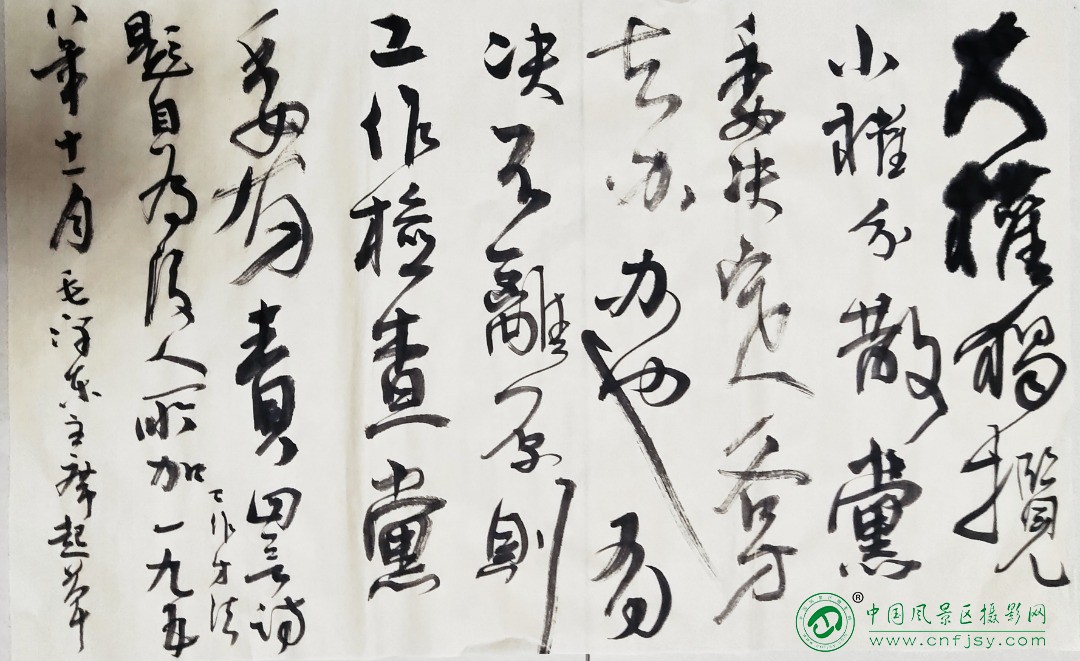 大權獨攬
小權分散黨
委决定各方
去办办也有
决不離原則
工作檢查黨
委有責四言詩
題目為後人所加一九五
工作方法
八年十一月毛泽东主席起草
中国风景区摄影网
www.cnfjsy.com